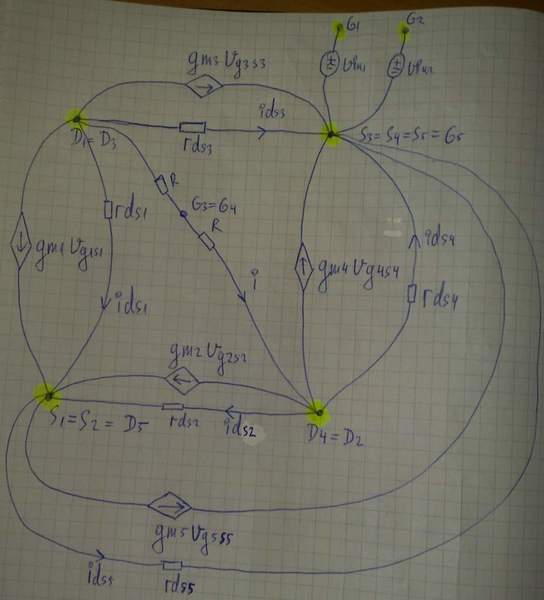 G1
G2
gm3 Vg3s3
Vin1
Vin2
ids3
D1=D3
rds3
S3=S4=S5=G5
R
rds1
G3=G4
R
ids4
gm1 Vg1s1
gm4 Vg4s4
i
rds4
ids1
gm2 Vg2s2
S1=S2=D5
rds2
ids2
D4=D2
gm5 Vg5s5
ids5
rds5